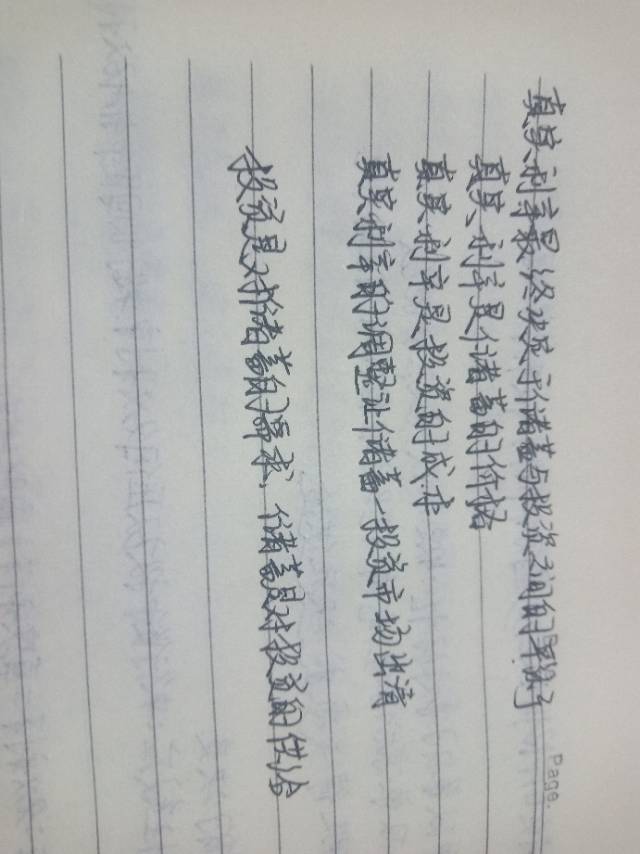 Page.
真实利率最终决定于储蓄与投资之间的平衡
真实利率是储蓄的价格
真实利率是投资的成本
真实利率的调整让储蓄-投资市场出清
投资是对储蓄的需求，储蓄是对投资的供给